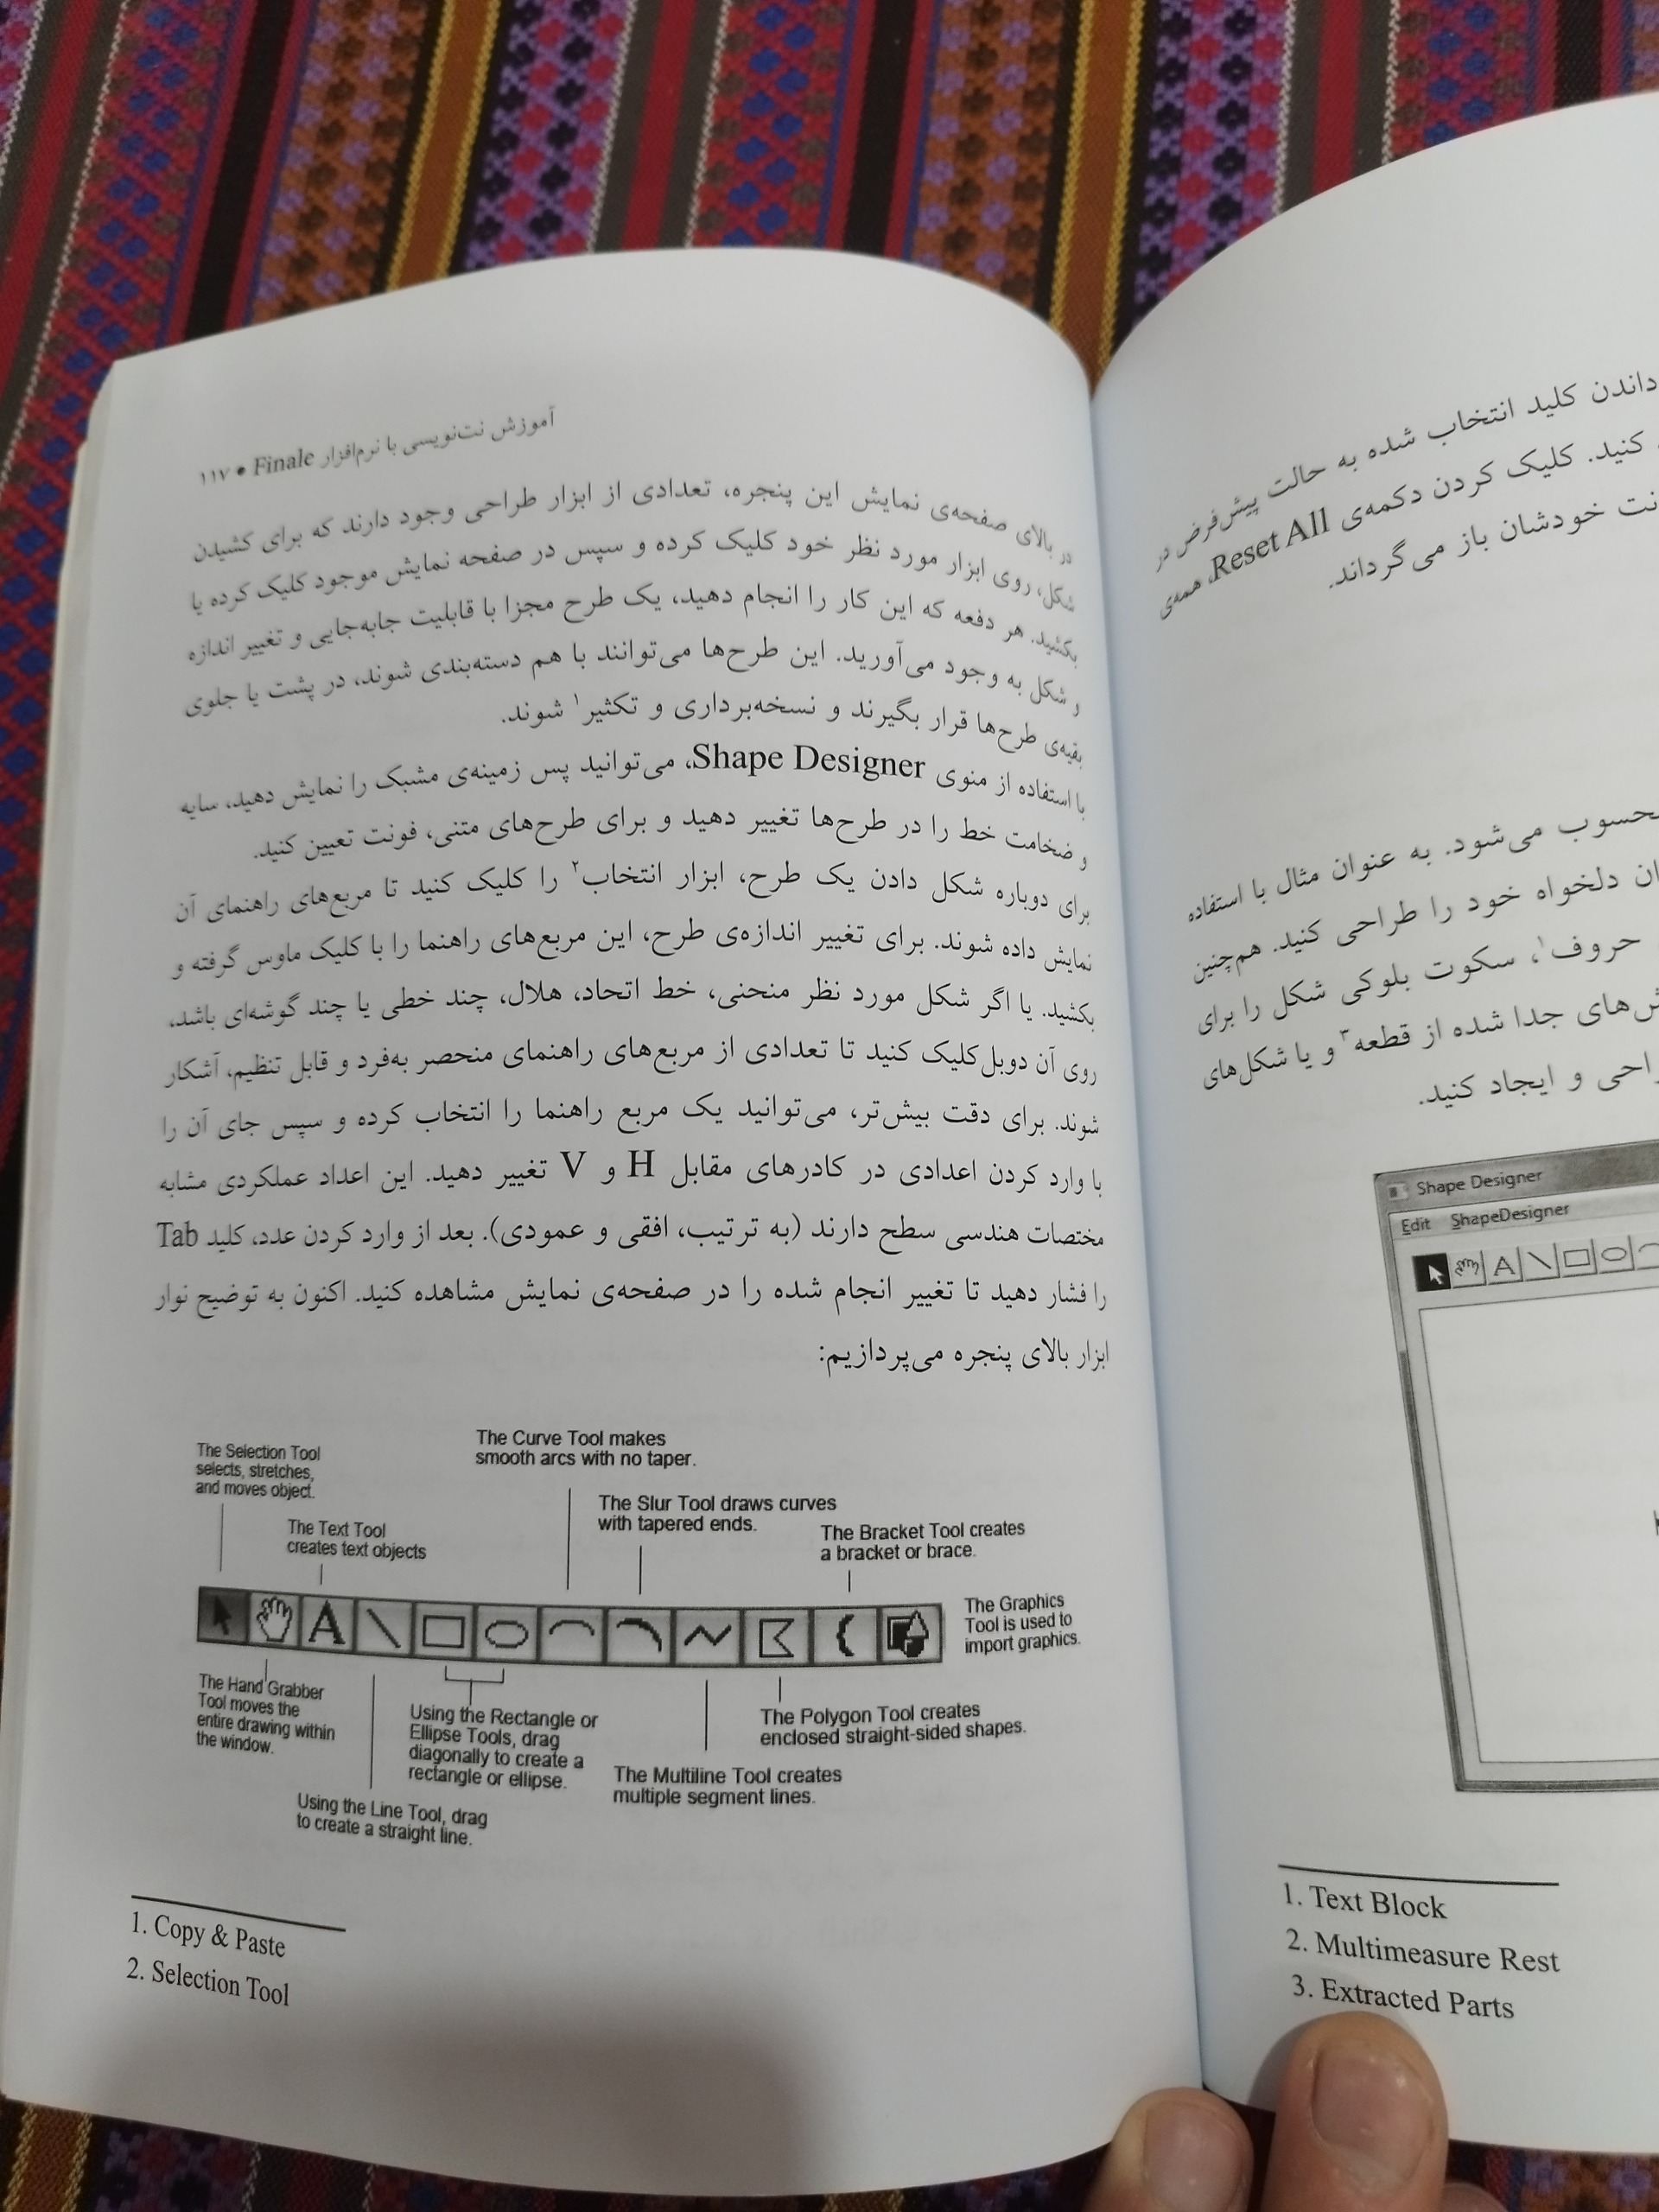 آموزش نت‌نویسی با نرم‌افزار Finale • ۱۱۷
در بالای صفحه‌ی نمایش این پنجره، تعدادی از ابزار طراحی وجود دارند که برای کشیدن
شکل، روی ابزار مورد نظر خود کلیک کرده و سپس در صفحه نمایش موجود کلیک کرده یا
بکشید. هر دفعه که این کار را انجام دهید، یک طرح مجزا با قابلیت جابه‌جایی و تغییر اندازه
و شکل به وجود می‌آورید. این طرح‌ها می‌توانند با هم دسته‌بندی شوند، در پشت یا جلوی
بقیه‌ی طرح‌ها قرار بگیرند و نسخه‌برداری و تکثیر۱ شوند.
با استفاده از منوی Shape Designer، می‌توانید پس زمینه‌ی مشبک را نمایش دهید، سایه
و ضخامت خط را در طرح‌ها تغییر دهید و برای طرح‌های متنی، فونت تعیین کنید.
برای دوباره شکل دادن یک طرح، ابزار انتخاب۲ را کلیک کنید تا مربع‌های راهنمای آن
نمایش داده شوند. برای تغییر اندازه‌ی طرح، این مربع‌های راهنما را با کلیک ماوس گرفته و
بکشید. یا اگر شکل مورد نظر منحنی، خط اتحاد، هلال، چند خطی یا چند گوشه‌ای باشد،
روی آن دوبل‌کلیک کنید تا تعدادی از مربع‌های راهنمای منحصر به‌فرد و قابل تنظیم، آشکار
شوند. برای دقت بیش‌تر، می‌توانید یک مربع راهنما را انتخاب کرده و سپس جای آن را
با وارد کردن اعدادی در کادرهای مقابل H و V تغییر دهید. این اعداد عملکردی مشابه
مختصات هندسی سطح دارند (به ترتیب، افقی و عمودی). بعد از وارد کردن عدد، کلید Tab
را فشار دهید تا تغییر انجام شده را در صفحه‌ی نمایش مشاهده کنید. اکنون به توضیح نوار
ابزار بالای پنجره می‌پردازیم:
The Selection Tool
selects, stretches,
and moves object.
The Text Tool
creates text objects
The Curve Tool makes
smooth arcs with no taper.
The Slur Tool draws curves
with tapered ends.
The Bracket Tool creates
a bracket or brace.
The Graphics
Tool is used to
import graphics.
A
The Hand Grabber
Tool moves the
entire drawing within
the window.
Using the Line Tool, drag
to create a straight line.
Using the Rectangle or
Ellipse Tools, drag
diagonally to create a
rectangle or ellipse.
The Multiline Tool creates
multiple segment lines.
The Polygon Tool creates
enclosed straight-sided shapes.
1. Copy & Paste
2. Selection Tool
کلید انتخاب شده به حالت پیش‌فرض در
کنید. کلیک کردن دکمه‌ی Reset All، همه‌ی
خودشان باز می‌گرداند.
می‌شود. به عنوان مثال با استفاده
دلخواه خود را طراحی کنید. هم‌چنین
حروف۱، سکوت بلوکی شکل را برای
جدا شده از قطعه۳ و یا شکل‌های
و ایجاد کنید.
Shape Designer
Edit ShapeDesigner
A
1. Text Block
2. Multimeasure Rest
3. Extracted Parts